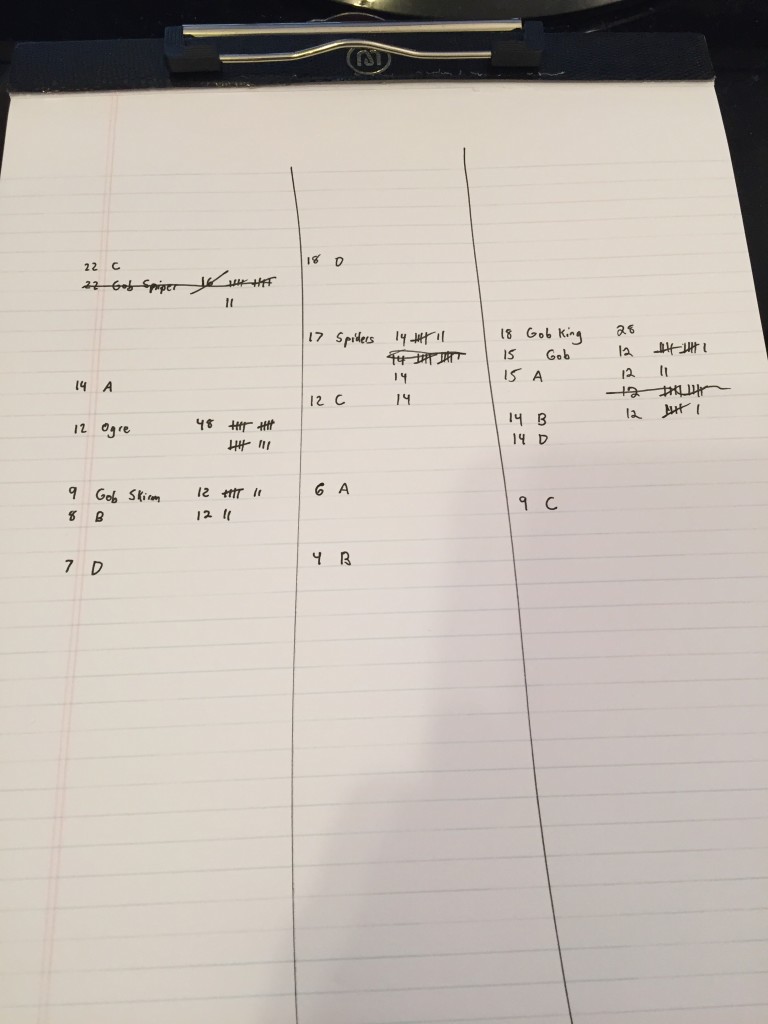 22 C
22 Gob Sniper 16 卌 卌
||
14 A
12 Ogre 48 卌 卌
卌 |||
9 Gob Skirm 12 卌 ||
8 B 12 ||
7 D
18 D
17 Spiders 14 卌 ||
14 卌 卌 |
14
12 C 14
6 A
4 B
18 Gob King 28
15 Gob 12 卌 卌 |
15 A 12 ||
12 卌 卌
14 B 12 卌 |
14 D
9 C